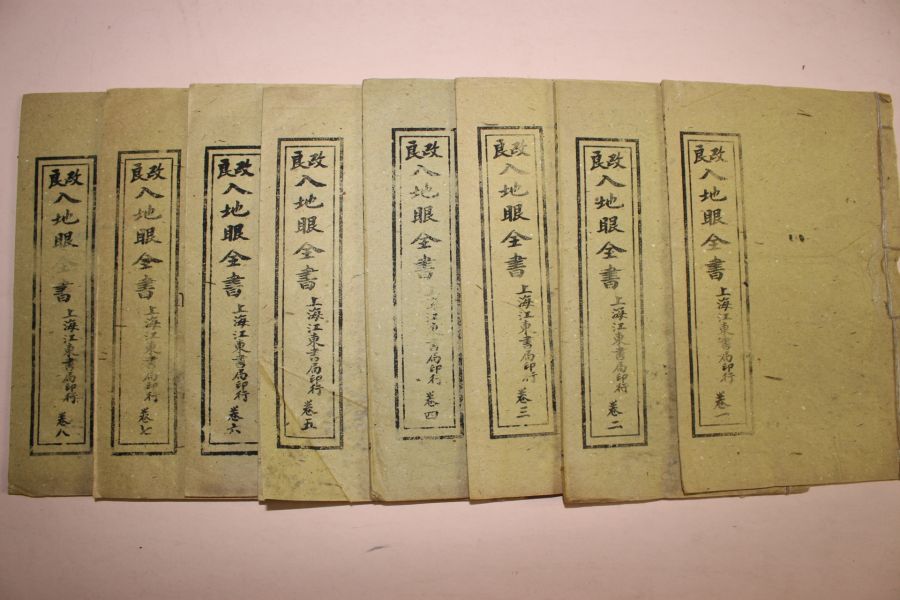 改良入地眼全書 上海江東書局印行 卷一
改良入地眼全書 上海江東書局印行 卷二
改良入地眼全書 上海江東書局印行 卷三
改良入地眼全書 上海江東書局印行 卷四
改良入地眼全書 上海江東書局印行 卷五
改良入地眼全書 上海江東書局印行 卷六
改良入地眼全書 上海江東書局印行 卷七
改良入地眼全書 上海江東書局印行 卷八